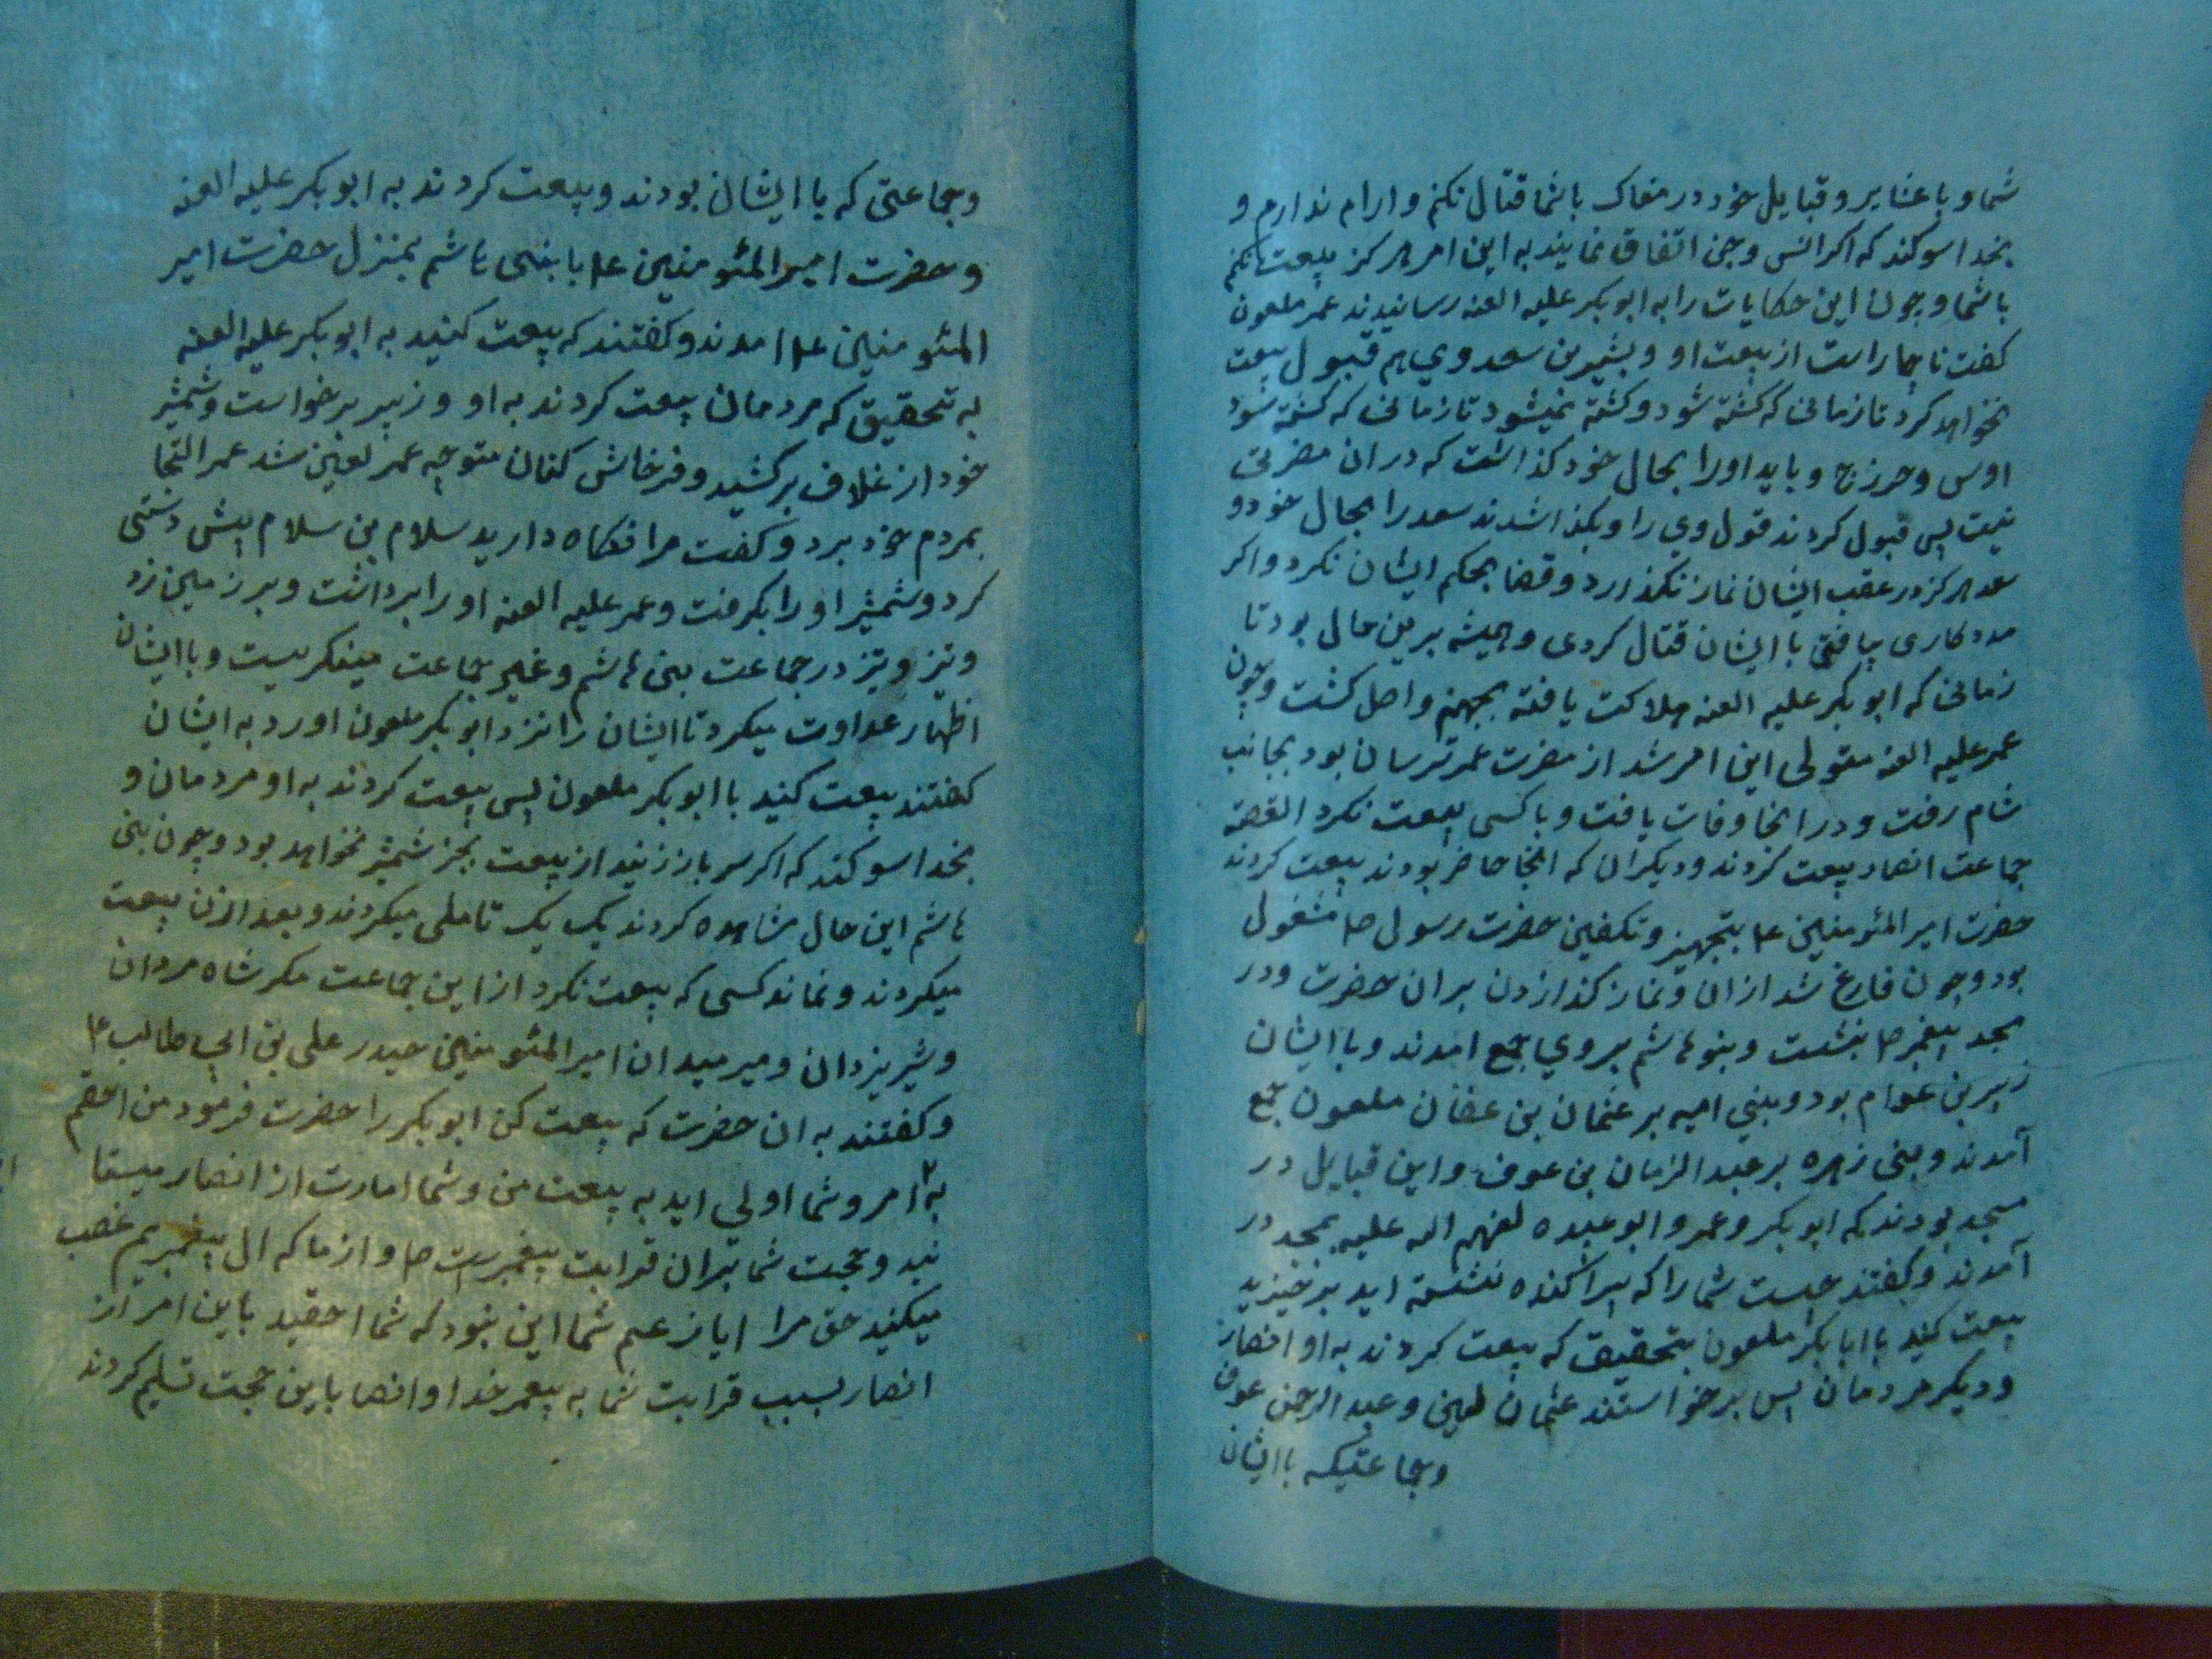 شما و با عشایر و قبایل خود در مغاک باشما قتال نکنم وارام ندارم و
بخدا سوکند که اکر انس و جن اتفاق نمایند به این امر هرکز بیعت نکنم
باشما و چون این حکایات را به ابوبکر علیه العنه رسانیدند عمر ملعون
کفت ناچار است از بیعت او و بشیر بن سعد وی هم قبول بیعت
نخواهد کرد تا زمانی که کشته شود و کشته نمیشود تا زمانی که کشته شود
اوس و خزرج و باید او را بحال خود کذاشت که در ان مضرتی
نیت پس قبول کردند قول وی را و بکذاشدند سعد را بحال خود و
سعد هرکز در عقب ایشان نماز نکذارد و قضا بحکم ایشان نکرد و اکر
مددکاری یافتی با ایشان قتال کردی و همیشه برین حال بود تا
زمانی که ابوبکر علیه العنه هلاکت یافته بجهنم واصل کشت و چون
عمر علیه العنه متولی این امر شد از مضرت عمر ترسان بود بجانب
شام رفت و در انجا وفات یافت و باکسی بیعت نکرد القصه
جماعت انصار بیعت کردند و دیکران که انجا حاضر بودند بیعت کردند
حضرت امیر المئومنین ع بتجهیز و تکفین حضرت رسول ص مشغول
بود و چون فارغ شد از ان و نماز کذاردن بران حضرت و در
مجد پیغمبر ص بنشت و بنو هاشم بروی جمع امدند و با ایشان
زبیر بن عوام بود و بنی امیه بر عثمان بن عفان ملعون جمع
آمدند و بنی زهره بر عبد الرنمان بن عوف و این قبایل در
مسجد بودند که ابوبکر و عمر و ابو عبده لعنهم اله علیه بمجد در
آمدند و کفتند چیست شما را که پراکنده نشسته اید برخیزید
بیعت کنید با ابابکر ملعون بتحقیق که بیعت کردند به او انصار
و دیکر مردمان پس برخواستند عثمان لعین و عبد الرحمن عوف
وجماعتیکه باایشان
وجماعتی که با ایشان بودند و بیعت کردند به ابوبکر علیه العنه
و حضرت امیر المئومنین ع با بنی هاشم بمنزل حضرت امیر
المئومنین ع امدند و کفتند که بیعت کنید به ابوبکر علیه العنه
به تحقیق که مردمان بیعت کردند به او و زبیر برخواست و شمشیر
خود از غلاف برکشید و فرخاش کنان متوجه عمر لعین شد عمر التجا
بمردم خود برد و کفت مرا نکاه دارید سلام بن سلام پیش دستی
کرد و شمشیر او را بکرفت و عمر علیه العنه او را برداشت و بر زمین زد
و تیز و تیز در جماعت بنی هاشم و غیر جماعت مینکریست و باایشان
اظهار عداوت میکرد تا ایشان را نزد ابوبکر ملعون اورد به ایشان
کفتند بیعت کنید با ابوبکر ملعون پس بیعت کردند به او مردمان و
بخدا سوکند که اکر سر باز زنید از بیعت بجز شمشیر نخواهد بود و چون بنی
هاشم این حال مشاهده کردند یک یک تاملی میکردند و بعد ازن بیعت
میکردند و نماند کسی که بیعت نکرد از این جماعت مکر شاه مردان
و شیر یزدان و میر میدان امیر المئومنین حیدر علی بن ابی طالب ع
و کفتند به ان حضرت که بیعت کن ابوبکر را حضرت فرمود من احقم
به امر و شما اولی اید به بیعت من و شما امارت از انصار میستا
نید و حجت شما بران قرابت پیغمبرست ص و از ما که ال پیغمبریم غصب
میکنید حق مرا ایا زعم شما این نبود که شما احقید باین امر از
انصار بسبب قرابت شما به پیغمبر خدا و انصا باین حجت تسلیم کردند